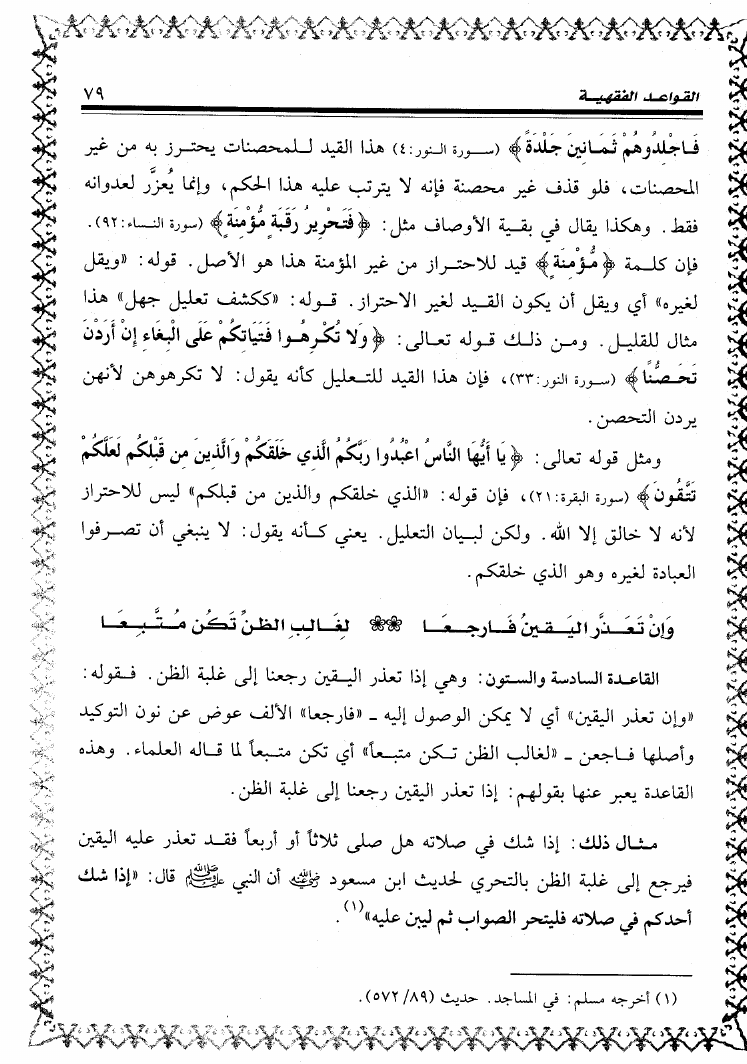 القواعد الفقهية
٧٩
فَاجْلِدُوهُمْ ثَمَانِينَ جَلْدَةً﴾ (سورة النور:٤) هذا القيد للمحصنات يحترز به من غير
المحصنات، فلو قذف غير محصنة فإنه لا يترتب عليه هذا الحكم، وإنما يُعزَّر لعدوانه
فقط. وهكذا يقال في بقية الأوصاف مثل: ﴿فَتَحْرِيرُ رَقَبَةٍ مُّؤْمِنَةٍ﴾ (سورة النساء:٩٢).
فإن كلمة ﴿مُّؤْمِنَةٍ﴾ قيد للاحتراز من غير المؤمنة هذا هو الأصل. قوله: «ويقل
لغيره» أي ويقل أن يكون القيد لغير الاحتراز. قوله: «ككشف تعليل جهل» هذا
مثال للقليل. ومن ذلك قوله تعالى: ﴿وَلا تُكْرِهُوا فَتَيَاتِكُمْ عَلَى الْبِغَاءِ إِنْ أَرَدْنَ
تَحَصُّنًا﴾ (سورة النور:٣٣)، فإن هذا القيد للتعليل كأنه يقول: لا تكرهوهن لأنهن
يردن التحصن.
ومثل قوله تعالى: ﴿يَا أَيُّهَا النَّاسُ اعْبُدُوا رَبَّكُمُ الَّذِي خَلَقَكُمْ وَالَّذِينَ مِن قَبْلِكُمْ لَعَلَّكُمْ
تَتَّقُونَ﴾ (سورة البقرة:٢١)، فإن قوله: «الذي خلقكم والذين من قبلكم» ليس للاحتراز
لأنه لا خالق إلا الله. ولكن لبيان التعليل. يعني كأنه يقول: لا ينبغي أن تصرفوا
العبادة لغيره وهو الذي خلقكم.
وَإنْ تَعَذَّر اليَقينُ فَارجعَا ❀❀ لغَالبِ الظنِّ تَكُن مُتَّبعَا
القاعدة السادسة والستون: وهي إذا تعذر اليقين رجعنا إلى غلبة الظن. فقوله:
«وإن تعذر اليقين» أي لا يمكن الوصول إليه ـ «فارجعا» الألف عوض عن نون التوكيد
وأصلها فاجعن ـ «لغالب الظن تكن متبعاً» أي تكن متبعاً لما قاله العلماء. وهذه
القاعدة يعبر عنها بقولهم: إذا تعذر اليقين رجعنا إلى غلبة الظن.
مثال ذلك: إذا شك في صلاته هل صلى ثلاثاً أو أربعاً فقد تعذر عليه اليقين
فيرجع إلى غلبة الظن بالتحري لحديث ابن مسعود رضي الله عنه أن النبي ﷺ قال: «إذا شك
أحدكم في صلاته فليتحر الصواب ثم ليبن عليه»(١).
(١) أخرجه مسلم: في المساجد. حديث (٨٩/ ٥٧٢).